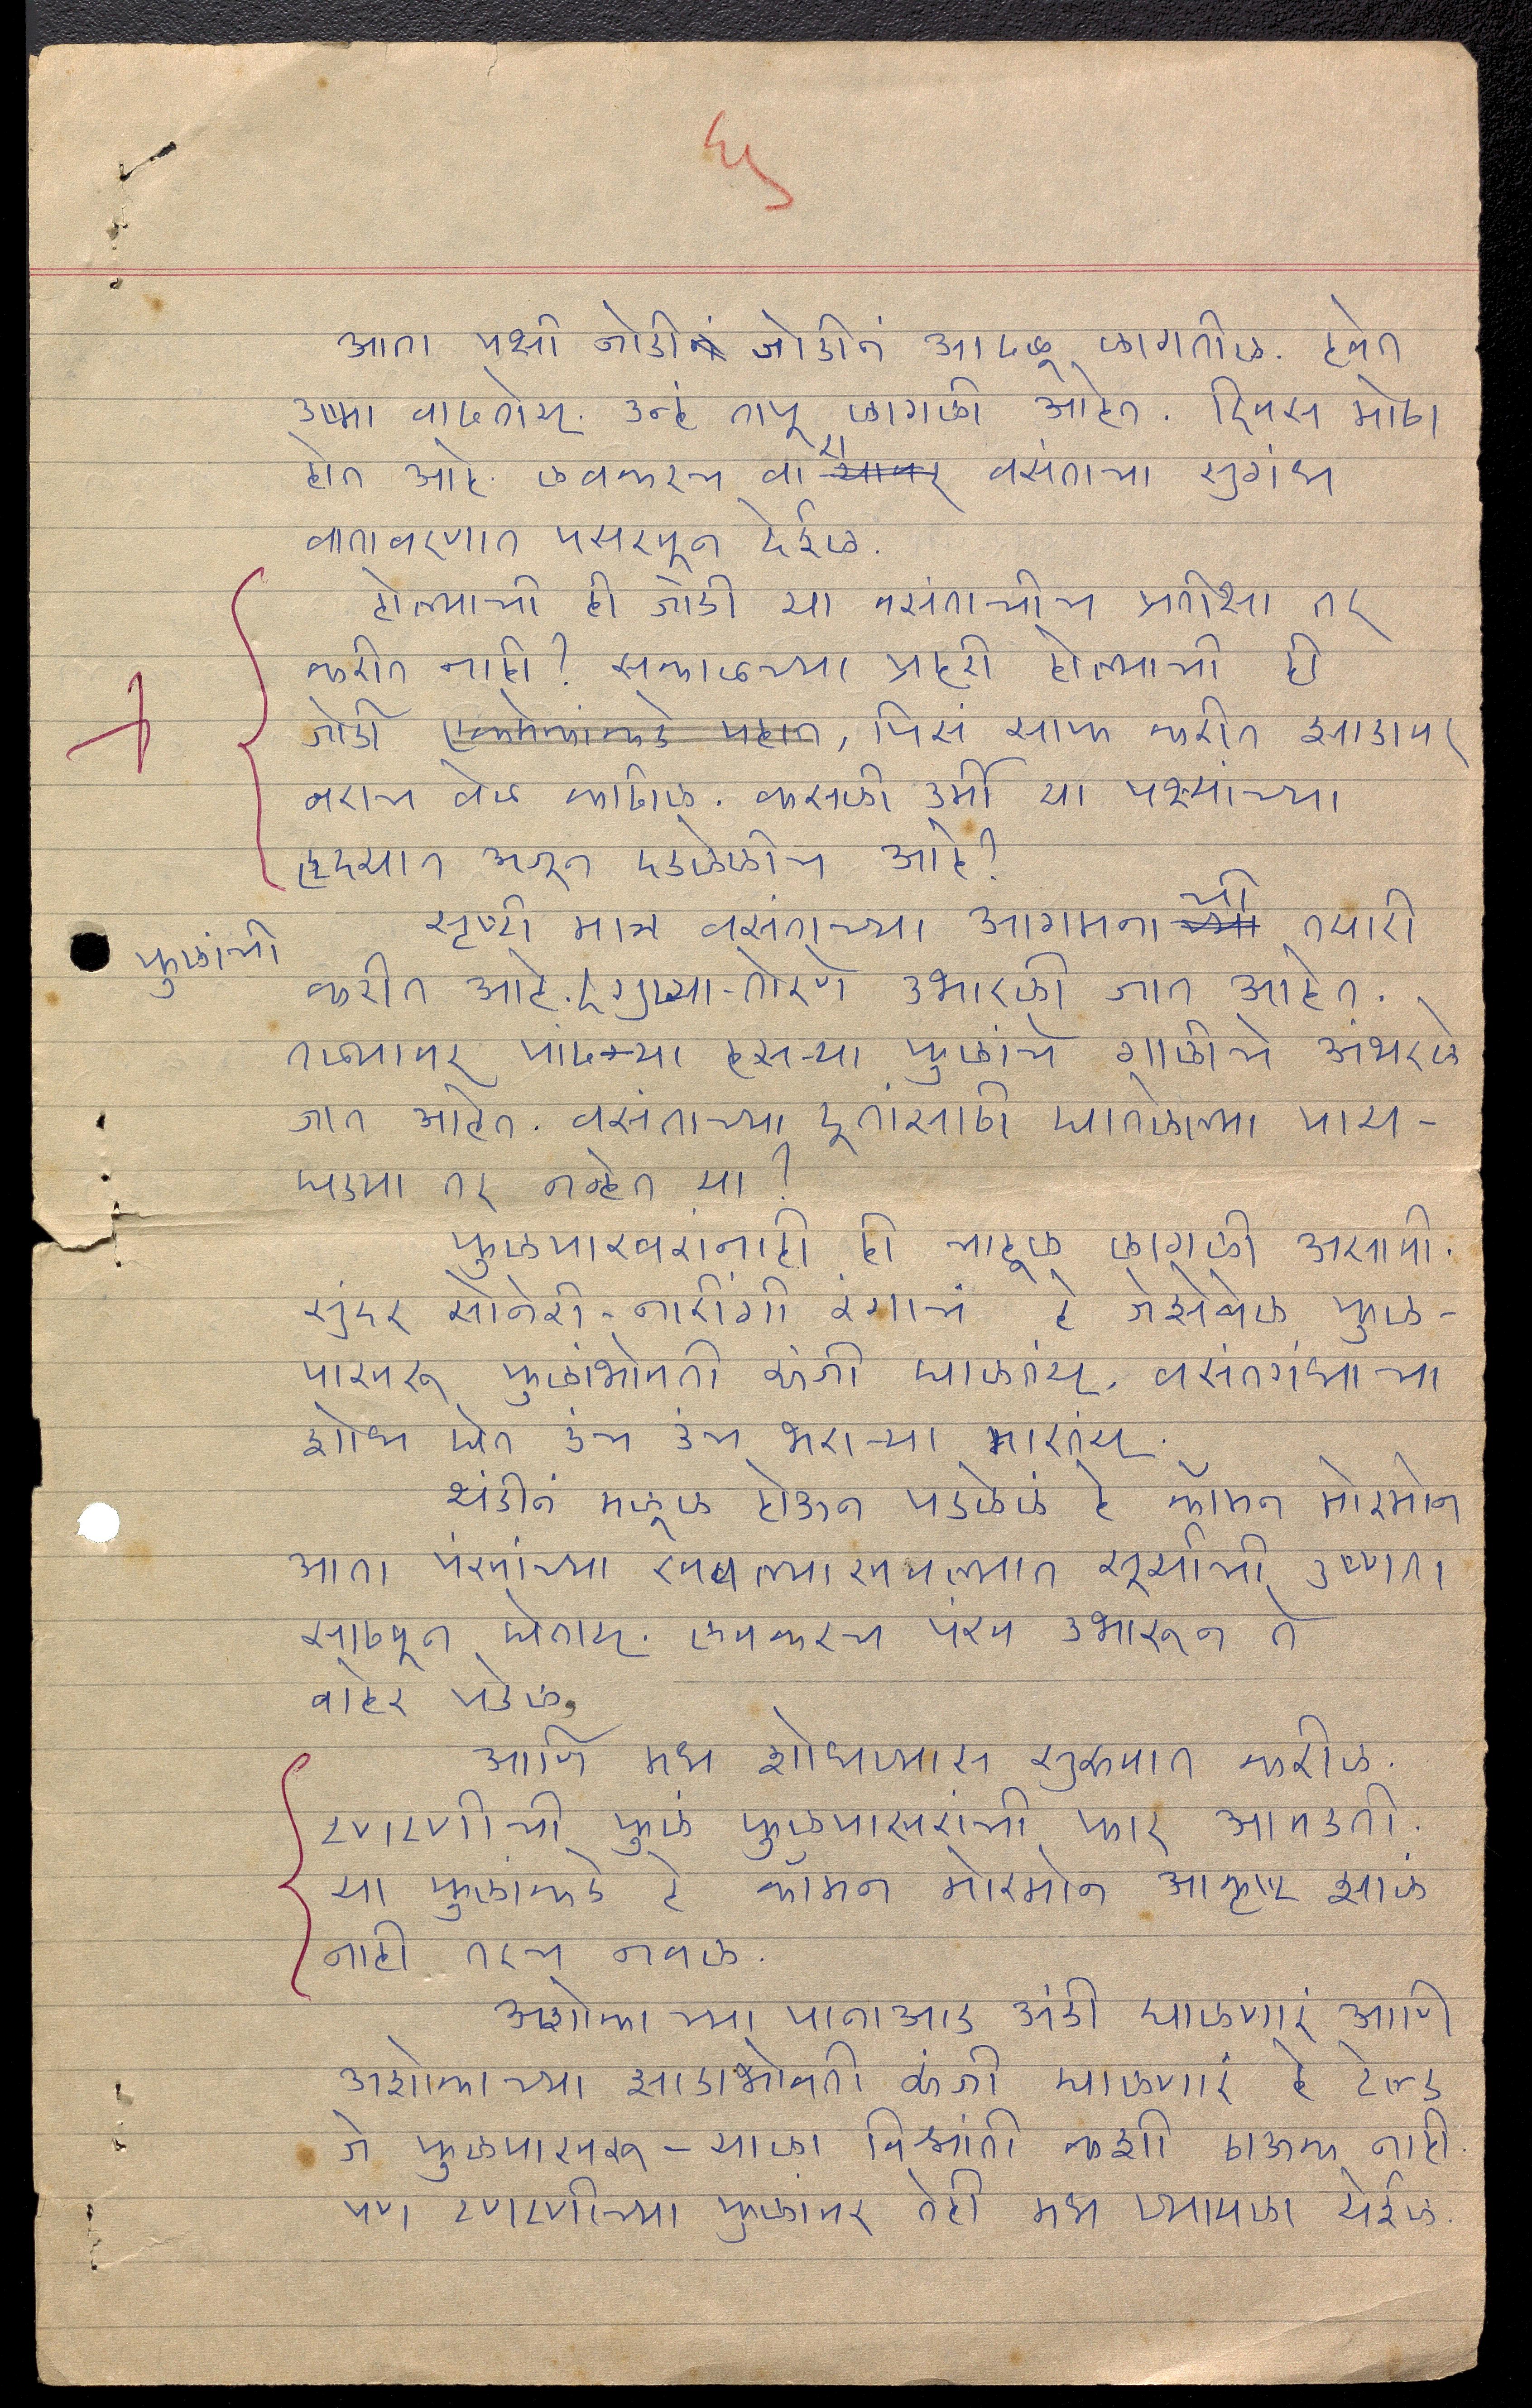 ५
आता पक्षी जोडीनं जोडीनं आढळू लागतील. हवेत
उष्मा वाढतोय. उन्हं तापू लागली आहेत. दिवस मोठा
होत आहे. लवकरच वारा वसंताचा सुगंध
वातावरणात पसरवून देईल.
होल्याची ही जोडी या वसंताचीच प्रतीक्षा तर
करीत नाही? सकाळच्या प्रहरी होल्याची ही
जोडी एकमेकांकडे पहात, पिसं साफ करीत झाडावर
बराच वेळ काढील. कसली उर्मी या पक्ष्यांच्या
हृदयात अजून दडलेलीच आहे?
सृष्टी मात्र वसंताच्या आगमनाची तयारी
फुलांची
करीत आहे. गुढ्या-तोरणे उभारली जात आहेत.
तळ्यावर पांढऱ्या हसऱ्या फुलांचे गालीचे अंथरले
जात आहेत. वसंताच्या दूतांसाठी घातलेल्या पाय-
घड्या तर नव्हेत या?
फुलपाखरांनाही ही चाहूल लागली असावी.
सुंदर सोनेरी-नारींगी रंगाचं हे जेझेबेल फुल-
पाखरू फुलांभोवती रुंजी घालतंय. वसंतगंधाचा
शोध घेत उंच उंच भराऱ्या मारतंय.
थंडीनं मलूल होऊन पडलेलं हे कॉमन मोरमोन
आता पंखांच्या खवल्याखवल्यात सूर्याची उष्णता
साठवून घेताय. लवकरच पंख उभारून ते
बाहेर पडेल.
आणि मध शोधण्यास सुरुवात करील.
टणटणीची फुलं फुलपाखरांची फार आवडती.
या फुलांकडे हे कॉमन मोरमोन आकृष्ट झालं
नाही तरच नवल.
अशोकाच्या पानाआड अंडी घालणारं आणि
अशोकाच्या झाडाभोवती रुंजी घालणारं हे टेल्ड
जे फुलपाखरू - याला विश्रांती कशी ठाऊक नाही.
पण टणटणीच्या फुलांवर तेही मध प्यायला येईल.